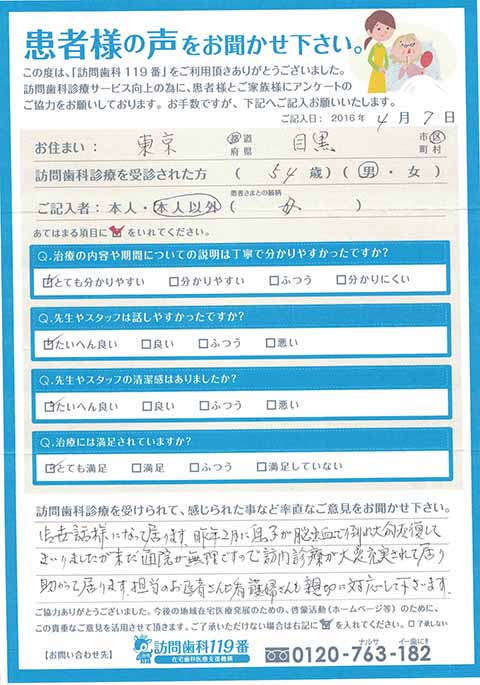 患者様の声をお聞かせ下さい。
この度は、「訪問歯科119番」をご利用頂きありがとうございました。
訪問歯科診療サービス向上の為に、患者様とご家族様にアンケートの
ご協力をお願いしております。お手数ですが、下記へご記入お願いいたします。
ご記入日: 2016年 4月 7日
お住まい: 東京 都道府県 目黒 市区町村
訪問歯科診療を受診された方 ( 54 歳) ( 男・女 )
患者さまとの続柄
ご記入者: 本人・本人以外 ( 母 )
あてはまる項目に をいれてください。
Q.治療の内容や期間についての説明は丁寧で分かりやすかったですか?
とても分かりやすい □分かりやすい □ふつう □分かりにくい
Q.先生やスタッフは話しやすかったですか?
たいへん良い □良い □ふつう □悪い
Q.先生やスタッフの清潔感はありましたか?
たいへん良い □良い □ふつう □悪い
Q.治療には満足されていますか?
とても満足 □満足 □ふつう □満足していない
訪問歯科診療を受けられて、感じられた事など率直なご意見をお聞かせ下さい。
世話様になって居ります。昨年2月に息子が脳出血で倒れ大分快復して
まいりましたが未だ通院が無理ですので訪問診療が大変充実されて居り
助かって居ります。担当のお医者さんも看護婦さんも親切に対応して下さいます。
ご協力ありがとうございました。今後の地域在宅医療発展のための、啓蒙活動(ホームページ等)のために、
この貴重なご意見を活用させて頂きます。ご了承いただけない場合は右記に を入れてください。□了承しない
【お問い合わせ先】
訪問歯科119番
在宅歯科医療支援機構
ナルサ イー歯にき
0120-763-182